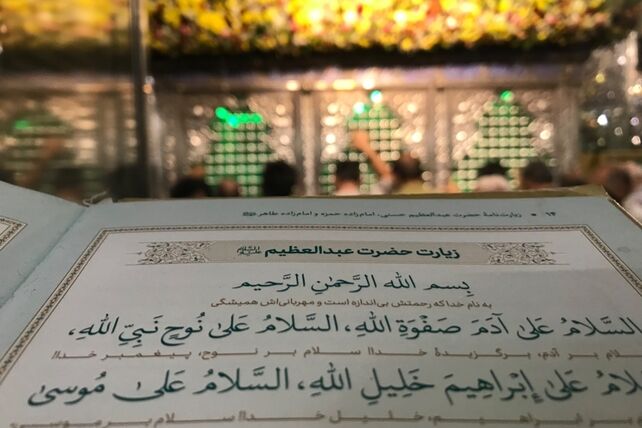 ۱۴ • زیارت‌نامهٔ حضرت عبدالعظیم حسنی، امام‌زاده حمزه و امام‌زاده طاهر
زیارت حضرت عبدالعظیم
بِسمِ اللهِ الرَّحمٰنِ الرَّحیمِ
به نام خدا که رحمتش بی‌اندازه است و مهربانی‌اش همیشگی
اَلسَّلامُ عَلیٰ آدَمَ صَفْوَةِ اللهِ، السَّلامُ عَلیٰ نُوحٍ نَبِيِّ اللهِ،
سلام بر آدم، برگزیدهٔ خدا! سلام بر نوح، پیغمبر خدا!
السَّلامُ عَلیٰ إِبْراهِیمَ خَلِیلِ اللهِ، السَّلامُ عَلیٰ مُوسیٰ
بر ابراهیم، خلیل خدا! سلام بر موسی،